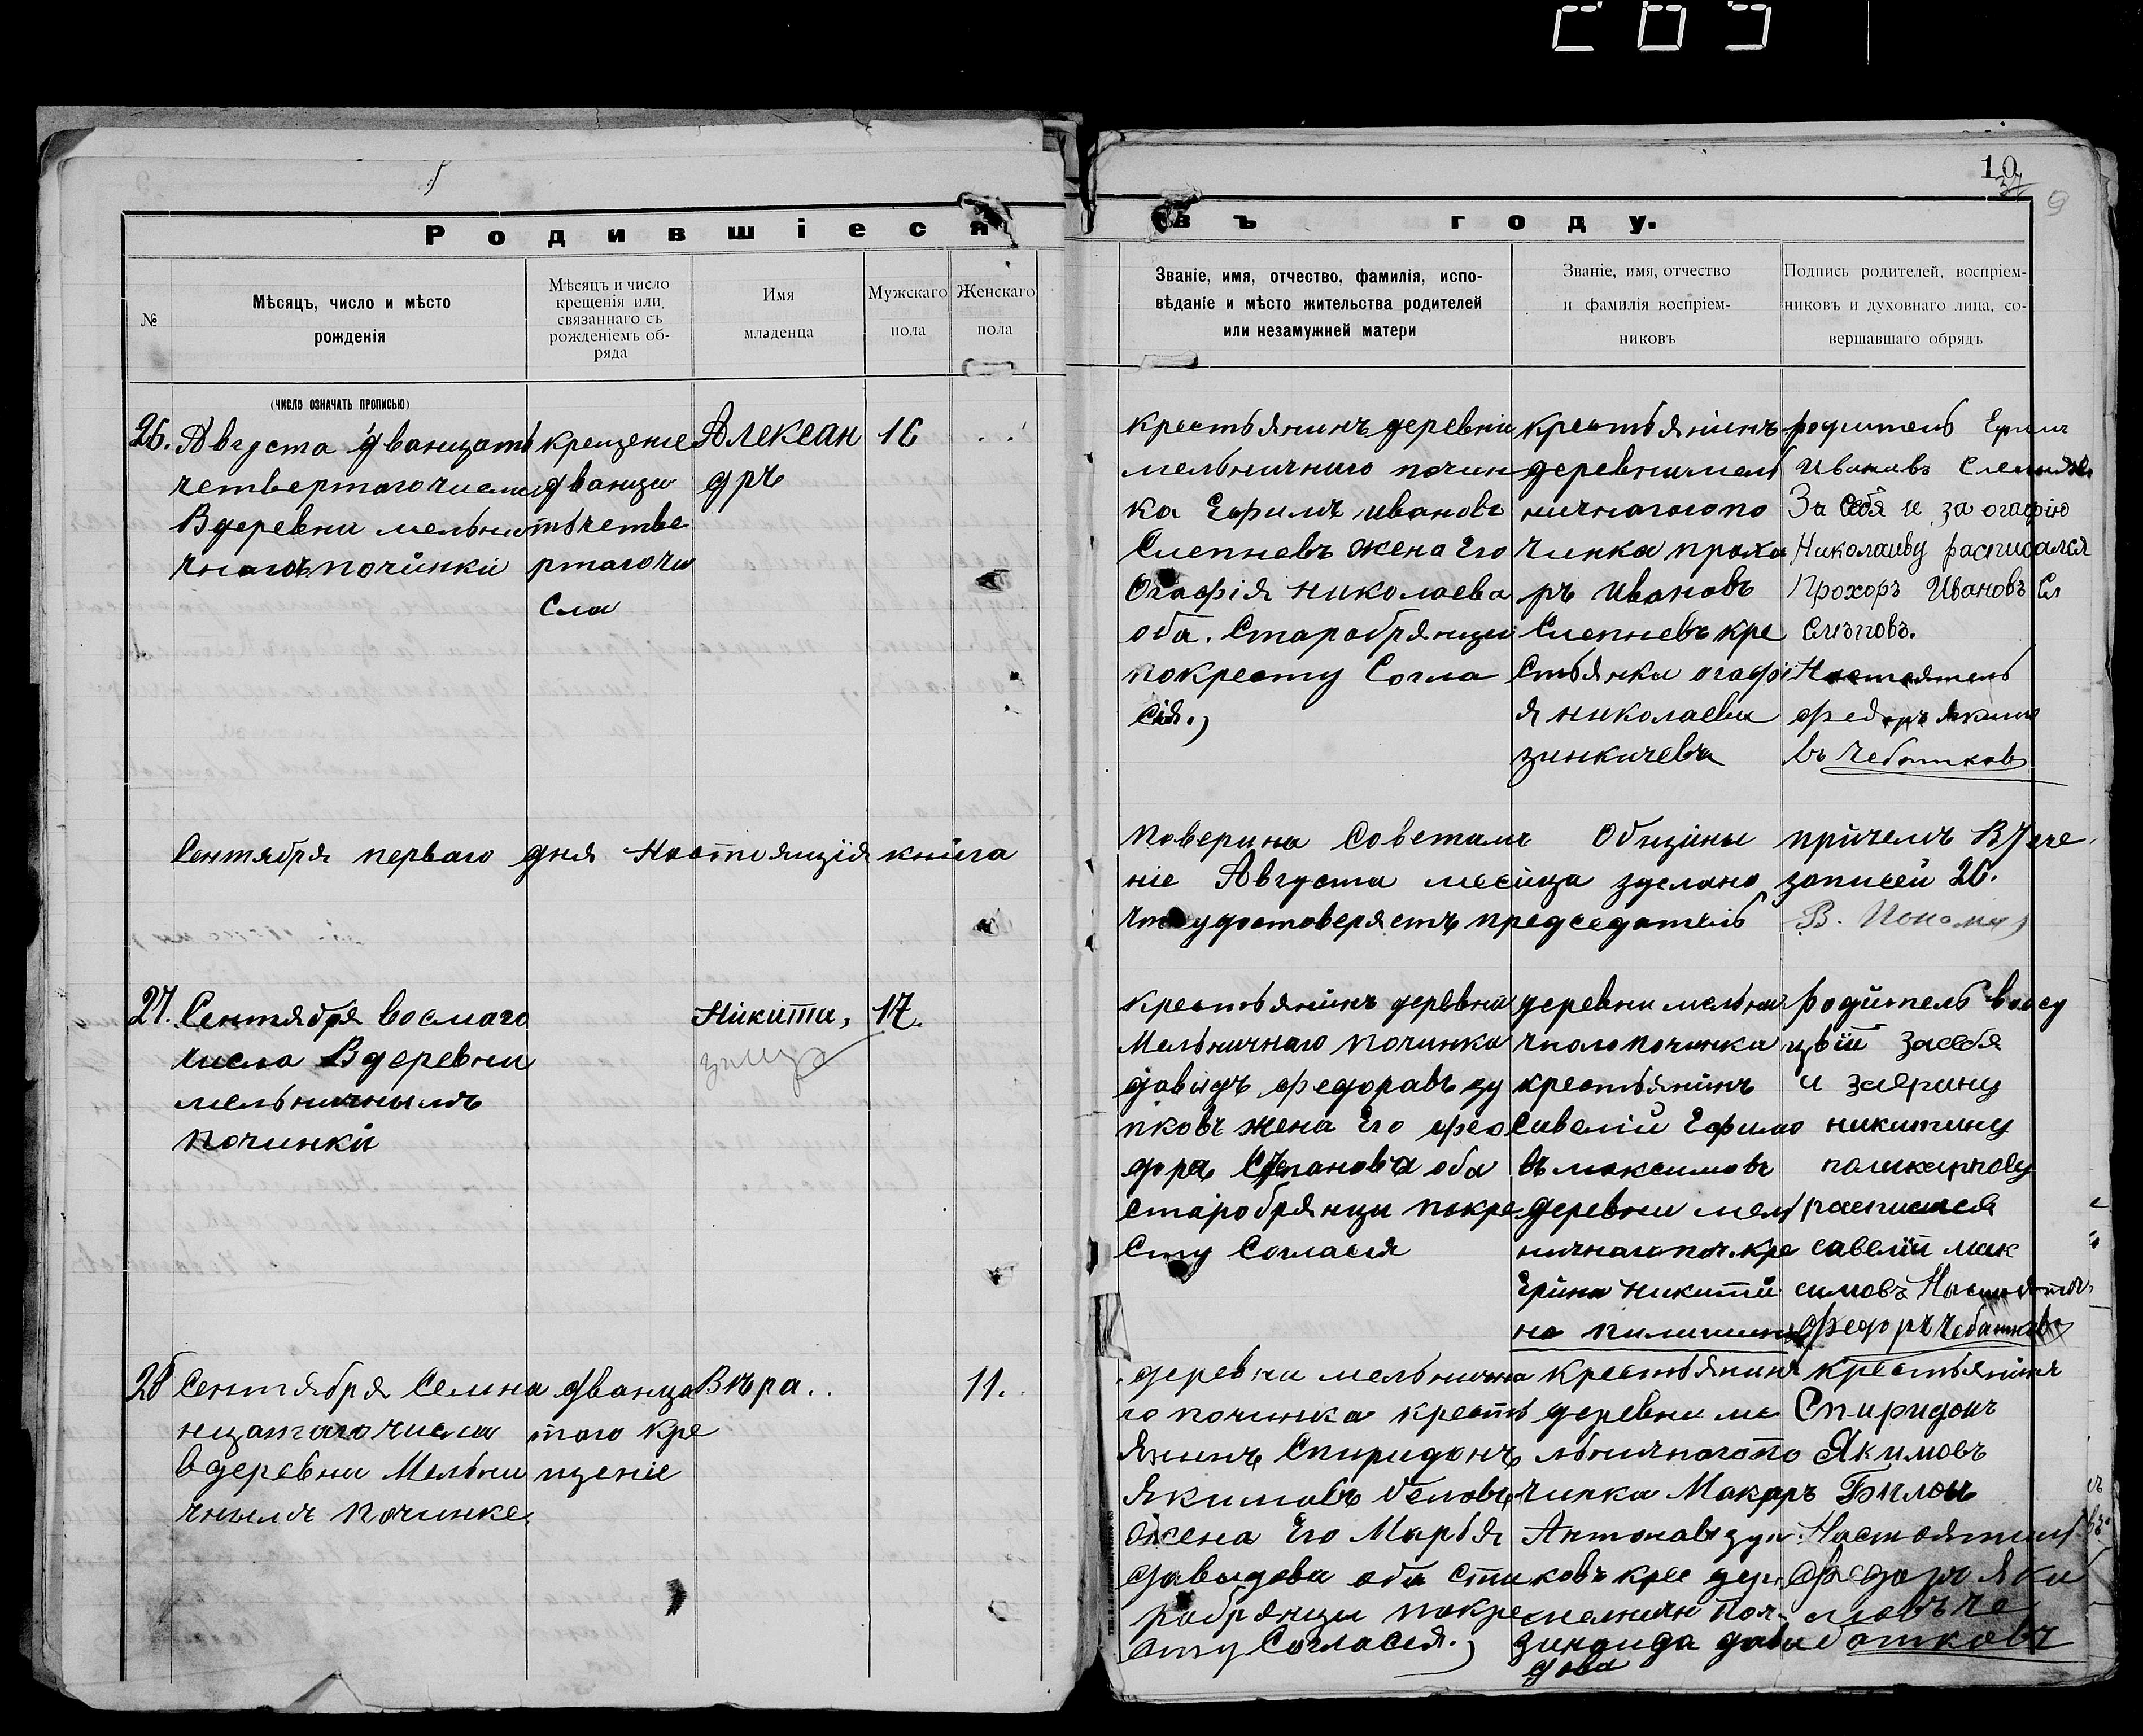 10
9
Родившіеся
въ году.
№
Мѣсяцъ, число и мѣсто
рожденія
Мѣсяцъ и число
крещенія или
связаннаго съ
рожденіемъ об-
ряда
Имя
младенца
Мужскаго
пола
Женскаго
пола
Званіе, имя, отчество, фамилія, испо-
вѣданіе и мѣсто жительства родителей
или незамужней матери
Званіе, имя, отчество
и фамилія воспріем-
никовъ
Подпись родителей, воспріем-
никовъ и духовнаго лица, со-
вершавшаго обрядъ
(число означать прописью)
26.
Августа дванцать
четвертаго числа
В деревни мельни
чнагъ починки
крещеніе
дванца
тьчетве
ртагочи
сла
Алексан
дръ
16
крестьянинъ деревни
мельничного почин
ка Ефимъ иванове
Слепневъ жена Его
Огафія николаева
оба. Старобрянцы
покресту Согла
сія.
крестьянинъ
деревнимель
ничнагопо
чинка проха
ръ Ивановъ
Слепневъ кре
стьянка огафі
я николаева
зинкичева
родитель Ефим
Ивановъ
За себя и за огафію
Николаиву расписался
Прохоръ Ивановъ Сл
слѣповъ.
Настоятель
федоръ якимо
въ Чеботков
Сентября перваго дня Настоящія книга
поверина Советамъ Общины причемъ В тече
ніе Августа месяца зделано записей 26.
что удостоверяетъ председатель
27.
Сентября восмаго
числа В деревни
мельничнымъ
починки
Никита,
17.
крестьянинъ деревни
Мельничнаго починка
давидъ федоравъ зу
пковъ жена Его фео
дора Степановна оба
старобрянцы покре
сту Согласія
деревни мельни
чнаго починка
крестьянинъ
Савелій Ефимо
въ максимовъ
деревни мель
ничнаго поч. кре
Ерина никити
на
родитель
за себя
и заерину
никитину
росписался
савелій мак
симовъ Настоятель
Федоръ Чебатковъ
28
Сентября Семна
нцатаго числа
в деревни Мельни
чнымъ починке.
дванца
таго кре
щеніе
Вѣра..
11.
деревни мельнична
го починка кресть
янинъ Спиридонъ
якимовъ беловъ
жена Его Марья
давыдова оба ста
робрянцы покре
сту Согласія.
крестьянин
деревни ме
льничнагопо
чинка Макаръ
Антонавъ зуп
ковъ крес дер.
мелнич поч.
зинаида давы
дова
крестьянинъ
Спиридонъ
Якимовъ
Бѣлов
Настоятель
Федоръ Яки
мовъ че
ботковъ